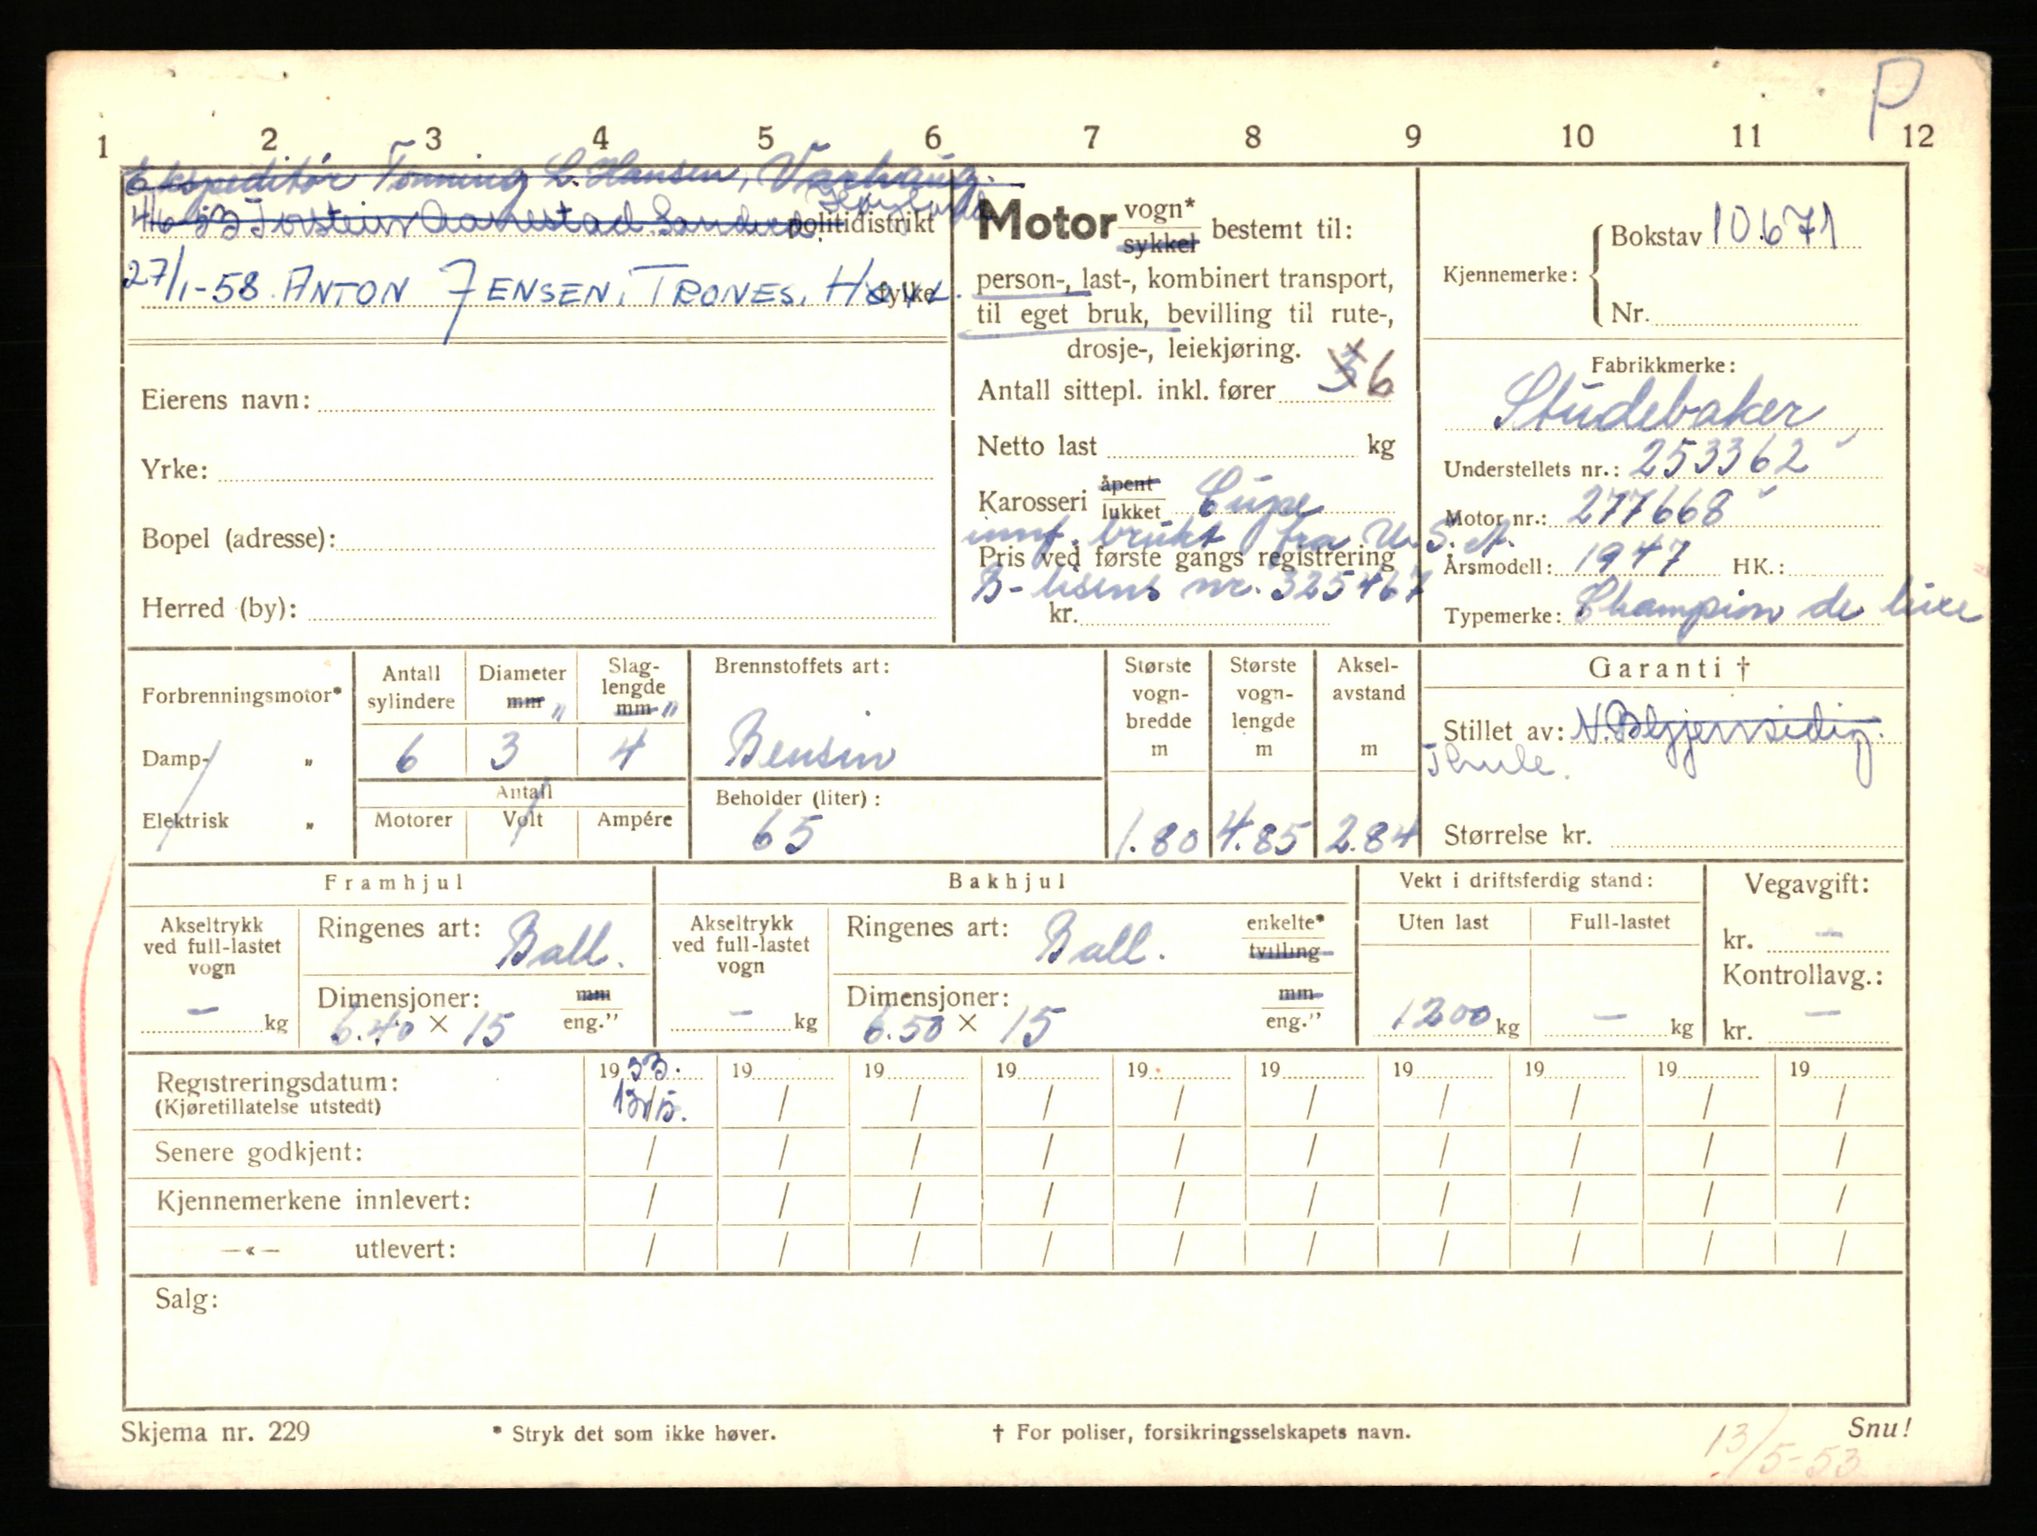 P
1 2 3 4 5 6 7 8 9 10 11 12
Ekspeditør Tønning L. Hansen, Varhaug.
4/6-53 Torstein Aarrestad Sandnes politidistrikt
27/1-58. ANTON JENSEN, TRONES, fylke
Eierens navn:
Yrke:
Bopel (adresse):
Herred (by):
Motor vogn* sykkel bestemt til:
person-, last-, kombinert transport,
til eget bruk, bevilling til rute-,
drosje-, leiekjøring.
Antall sittepl. inkl. fører 6
Netto last kg
Karosseri åpent lukket Cupe
innf. brukt fra U.S.A.
Pris ved første gangs registrering
B-lisens nr. 325467
kr.
Kjennemerke: Bokstav 10671
Nr.
Fabrikkmerke:
Studebaker
Understellets nr.: 253362
Motor nr.: 277668
Årsmodell: 1947 HK.:
Typemerke: Champion de luxe
Forbrenningsmotor*
Damp- "
Elektrisk "
Antall sylindere 6
Diameter mm " 3
Slaglengde mm " 4
Antall
Motorer Volt Ampére
Brennstoffets art:
Bensin
Beholder (liter):
65
Største vognbredde m 1.80
Største vognlengde m 4.85
Akselavstand m 2.84
Garanti †
Stillet av:
Thule.
Størrelse kr.
Framhjul
Akseltrykk ved full-lastet vogn - kg
Ringenes art: Ball.
Dimensjoner: mm
6.40 × 15 eng."
Bakhjul
Akseltrykk ved full-lastet vogn - kg
Ringenes art: Ball. enkelte* tvilling
Dimensjoner: mm
6.50 × 15 eng."
Vekt i driftsferdig stand:
Uten last Full-lastet
1200 kg - kg
Vegavgift:
kr. -
Kontrollavg.:
kr. -
Registreringsdatum: 1953. 19 19 19 19 19 19 19 19 19
(Kjøretillatelse utstedt) 13/5. / / / / / / / / /
Senere godkjent: / / / / / / / / / /
Kjennemerkene innlevert: / / / / / / / / / /
—«— utlevert: / / / / / / / / / /
Salg:
Skjema nr. 229 * Stryk det som ikke høver. † For poliser, forsikringsselskapets navn. Snu!
13/5-53